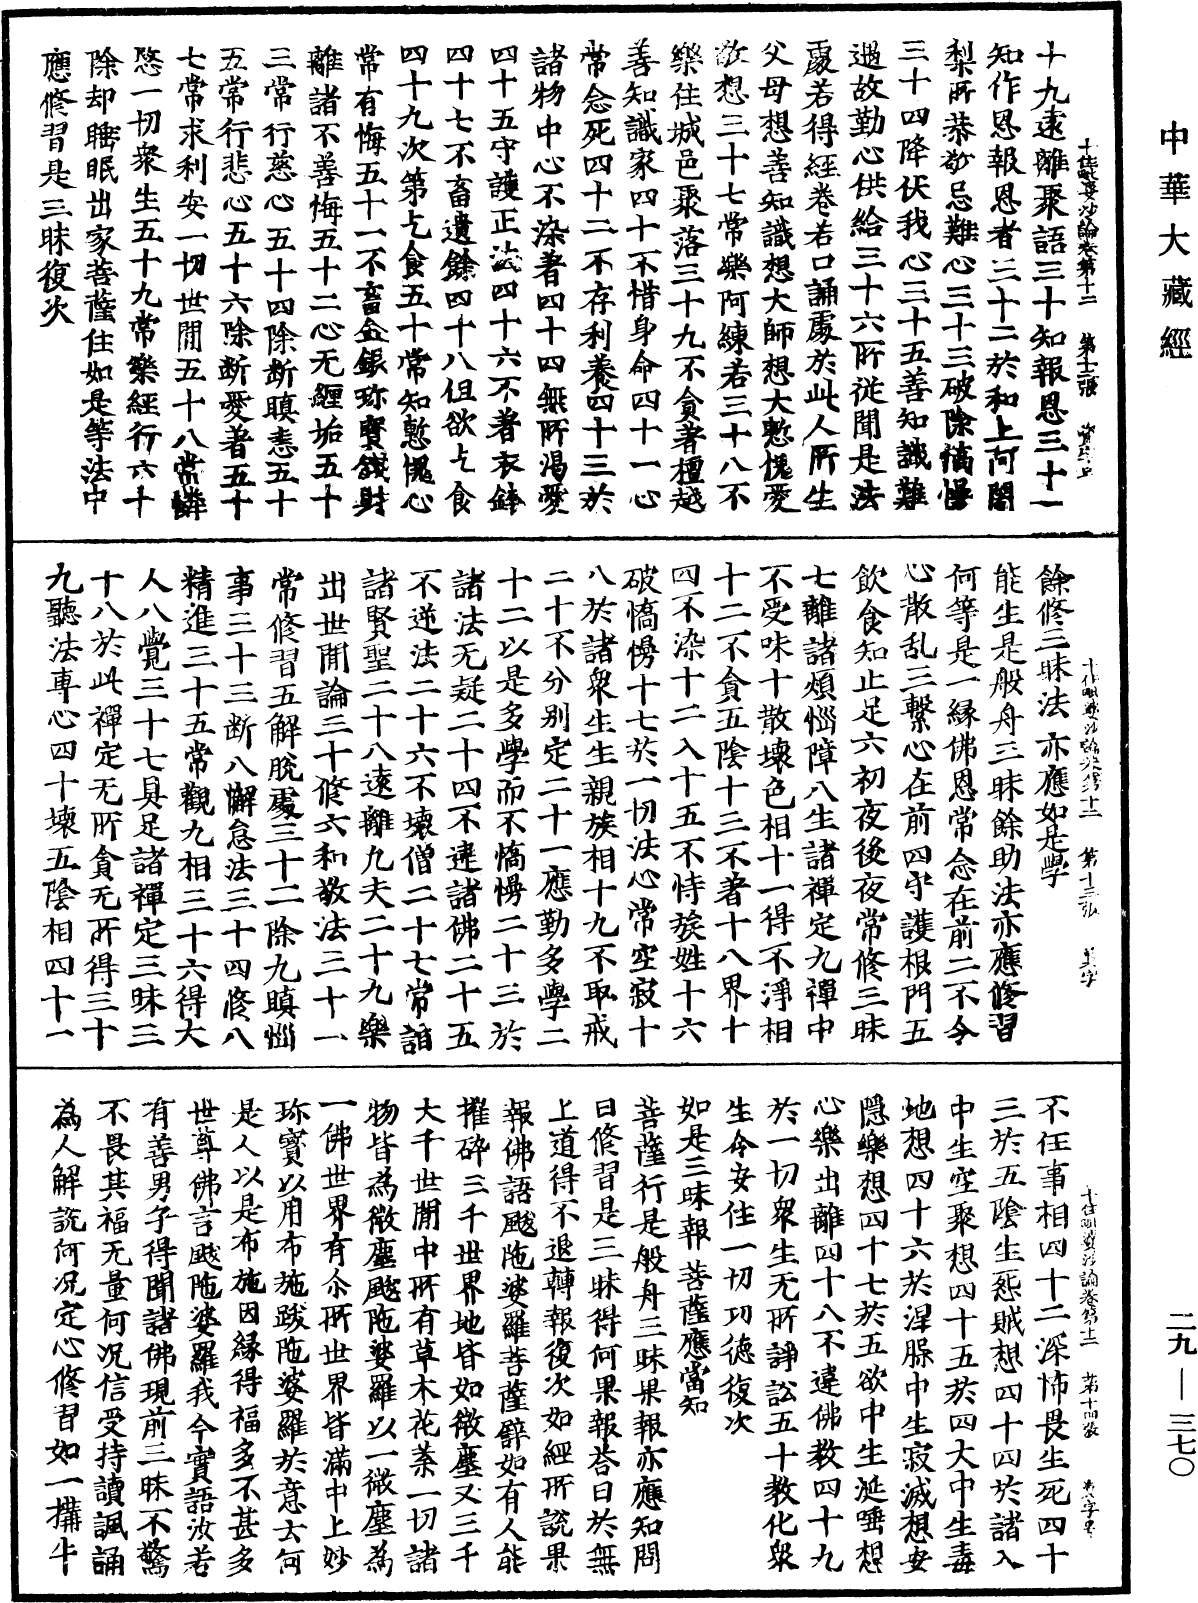 中華大藏經
十住毗婆沙論卷第十二 第十二張
十九遠離聚語三十知報恩三十一
知作恩報恩者三十二於和上阿闍
梨所恭敬忌難心三十三破除憍慢
三十四降伏我心三十五善知識難
遇故勤心供給三十六所從聞是法
處若得經卷若口誦處於此人所生
父母想善知識想大師想大慙愧愛
敬想三十七常樂阿練若三十八不
樂住城邑聚落三十九不貪著檀越
善知識家四十不惜身命四十一心
常念死四十二不存利養四十三於
諸物中心不染著四十四無所渴愛
四十五守護正法四十六不著衣鉢
四十七不畜遺餘四十八但欲乞食
四十九次第乞食五十常知慙愧心
常有悔五十一不畜金銀珎寶錢財
離諸不善悔五十二心无纏垢五十
三常行慈心五十四除断瞋恚五十
五常行悲心五十六除断愛著五十
七常求利安一切世間五十八常憐
愍一切衆生五十九常樂經行六十
除却睡眠出家菩薩住如是等法中
應修習是三昧復次
十住毗婆沙論卷第十二 第十三張
餘修三昧法 亦應如是學
能生是般舟三昧餘助法亦應修習
何等是一緣佛恩常念在前二不令
心散乱三繫心在前四守護根門五
飲食知止足六初夜後夜常修三昧
七離諸煩惱障八生諸禪定九禪中
不受味十散壞色相十一得不淨相
十二不貪五陰十三不著十八界十
四不染十二入十五不恃族姓十六
破憍慢十七於一切法心常空寂十
八於諸衆生生親族相十九不取戒
二十不分别定二十一應勤多學二
十二以是多學而不憍慢二十三於
諸法无疑二十四不違諸佛二十五
不逆法二十六不壞僧二十七常詣
諸賢聖二十八遠離九夫二十九樂
出世間論三十修六和敬法三十一
常修習五解脫處三十二除九瞋惱
事三十三断八懈怠法三十四修八
精進三十五常觀九相三十六得大
人八覺三十七具足諸禪定三昧三
十八於此禪定无所貪无所得三十
九聽法專心四十壞五陰相四十一
十住毗婆沙論卷第十二 第十四張
不住事相四十二深怖畏生死四十
三於五陰生惌賊想四十四於諸入
中生空聚想四十五於四大中生毒
地想四十六於涅脲中生寂滅想安
隱樂想四十七於五欲中生涎唾想
心樂出離四十八不違佛教四十九
於一切衆生无所諍訟五十教化衆
生令安住一切功德復次
如是三昧報 菩薩應當知
菩薩行是般舟三昧果報亦應知問
曰修習是三昧得何果報荅曰於無
上道得不退轉報復次如經所說果
報佛語颰陁婆羅菩薩辟如有人能
摧碎三千世界地皆如微塵又三千
大千世間中所有草木花葉一切諸
物皆為微塵颰陁婆羅以一微塵為
一佛世界有尒所世界皆滿中上妙
珎寶以用布施跋陁婆羅於意云何
是人以是布施因緣得福多不甚多
世尊佛言颰陁婆羅我今實語汝若
有善男子得聞諸佛現前三昧不驚
不畏其福无量何况信受持讀諷誦
為人解說何况定心修習如一搆牛
二九—三七〇